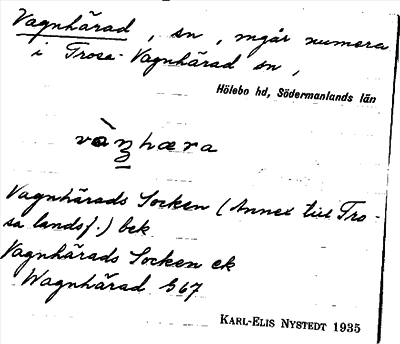 Vagnhärad, sn, ingår numera
i Trosa-Vagnhärad sn,
Hölebo hd, Södermanlands län
Vagnhärads Socken (Annex till Tro-
sa landsf.) bek
Vagnhärads Socken ek
Wagnhärad 567
KARL-ELIS NYSTEDT 1935